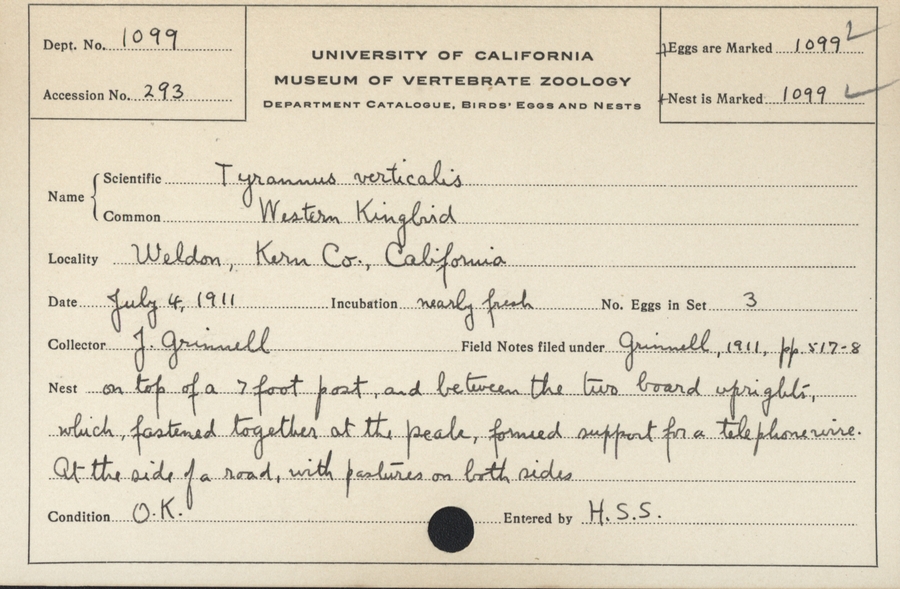 Dept. No. 1099
UNIVERSITY OF CALIFORNIA
MUSEUM OF VERTEBRATE ZOOLOGY
DEPARTMENT CATALOGUE, BIRDS' EGGS AND NESTS
Eggs are Marked 1099
Accession No. 293
Nest is Marked 1099
Name
Scientific Tyrannus verticalis
Common Western Kingbird
Locality Weldon, Kern Co., California
Date July 4, 1911 Incubation nearly fresh No. Eggs in Set 3
Collector J. Grinnell Field Notes filed under Grinnell, 1911, pp. 517-8
Nest on top of a 7 foot post, and between the two board uprights,
which, fastened together at the peak, formed support for a telephone wire.
At the side of a road, with pastures on both sides
Condition O.K. Entered by H.S.S.